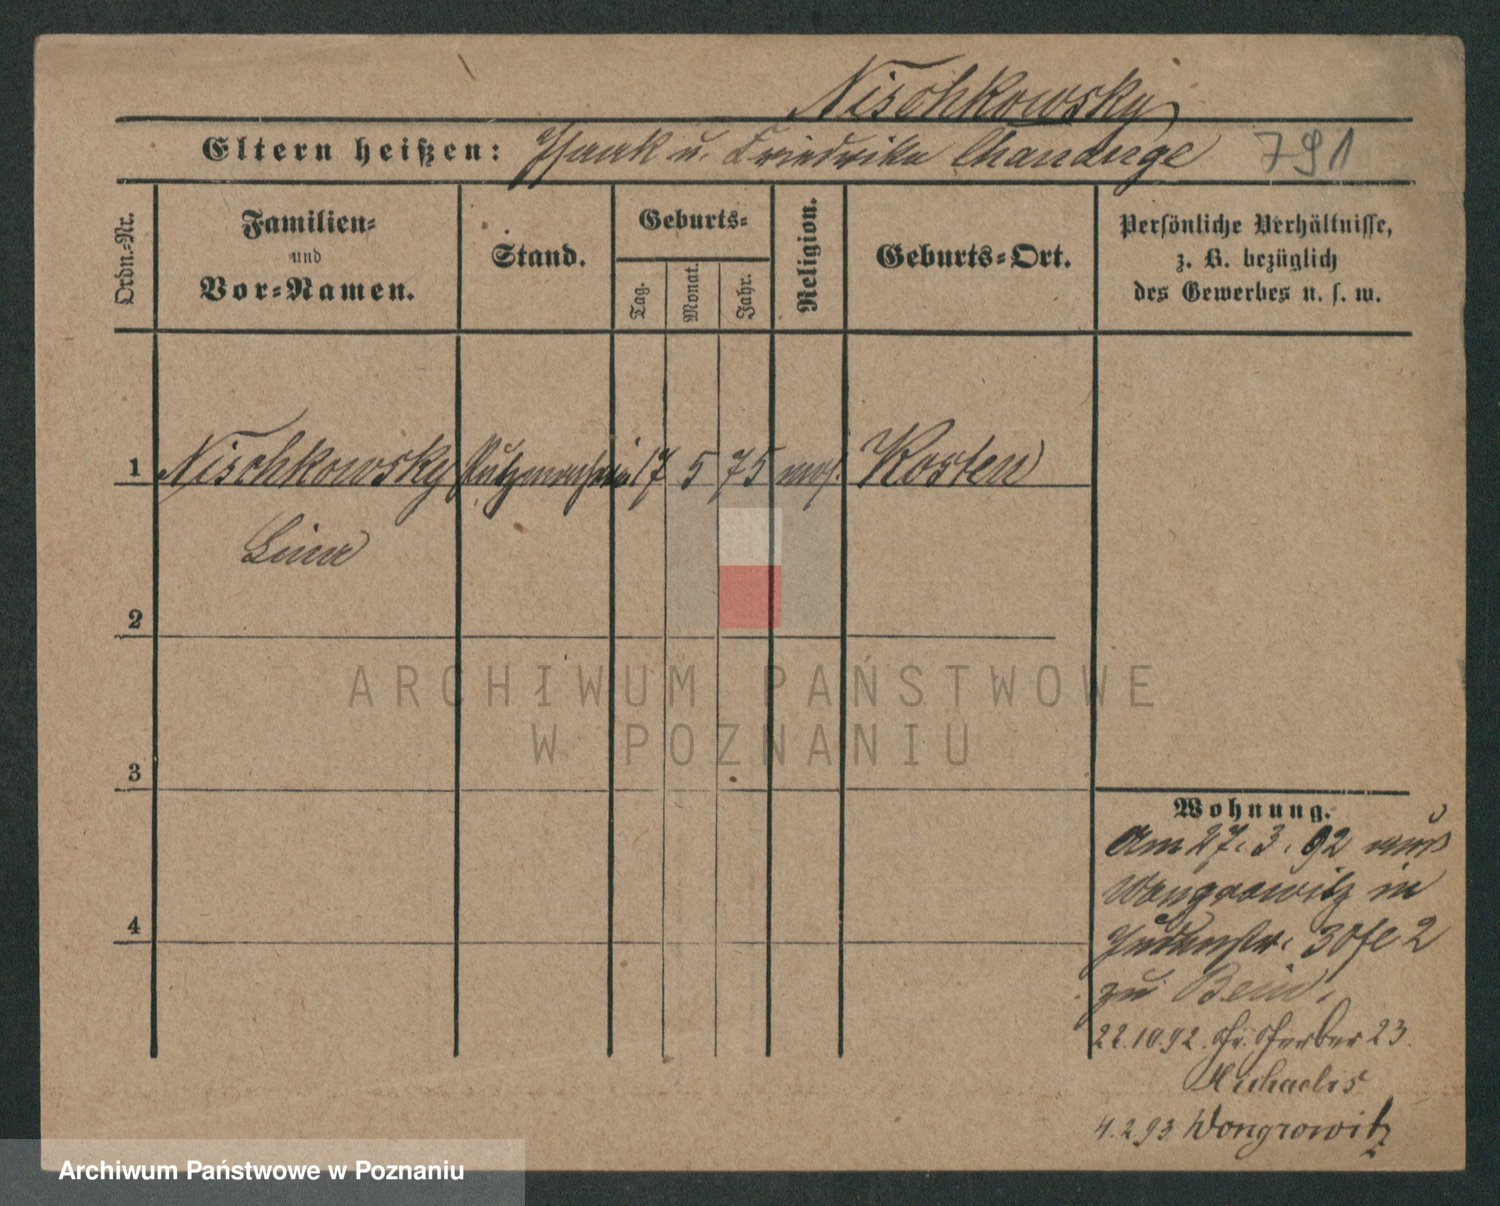 Nischkowsky
Eltern heißen: Isaak u. Friedrike 791
Ordn.-Nr.
Familien-
und
Vor-Namen.
Stand.
Geburts-
Tag.
Monat.
Jahr.
Religion.
Geburts-Ort.
Persönliche Verhältnisse,
z. B. bezüglich
des Gewerbes u. s. w.
1 Nischkowsky Putzmacherin 17 5 75 mos. Kosten
Lina
2
3
4
Wohnung.
Am 27.3.92 aus
Wongrowitz in
Judenstr. 30 2
zu
22.10.92. Gr. Gerber 23.
Michaelis
4.2.93 Wongrowitz
ARCHIWUM PAŃSTWOWE
W POZNANIU
Archiwum Państwowe w Poznaniu